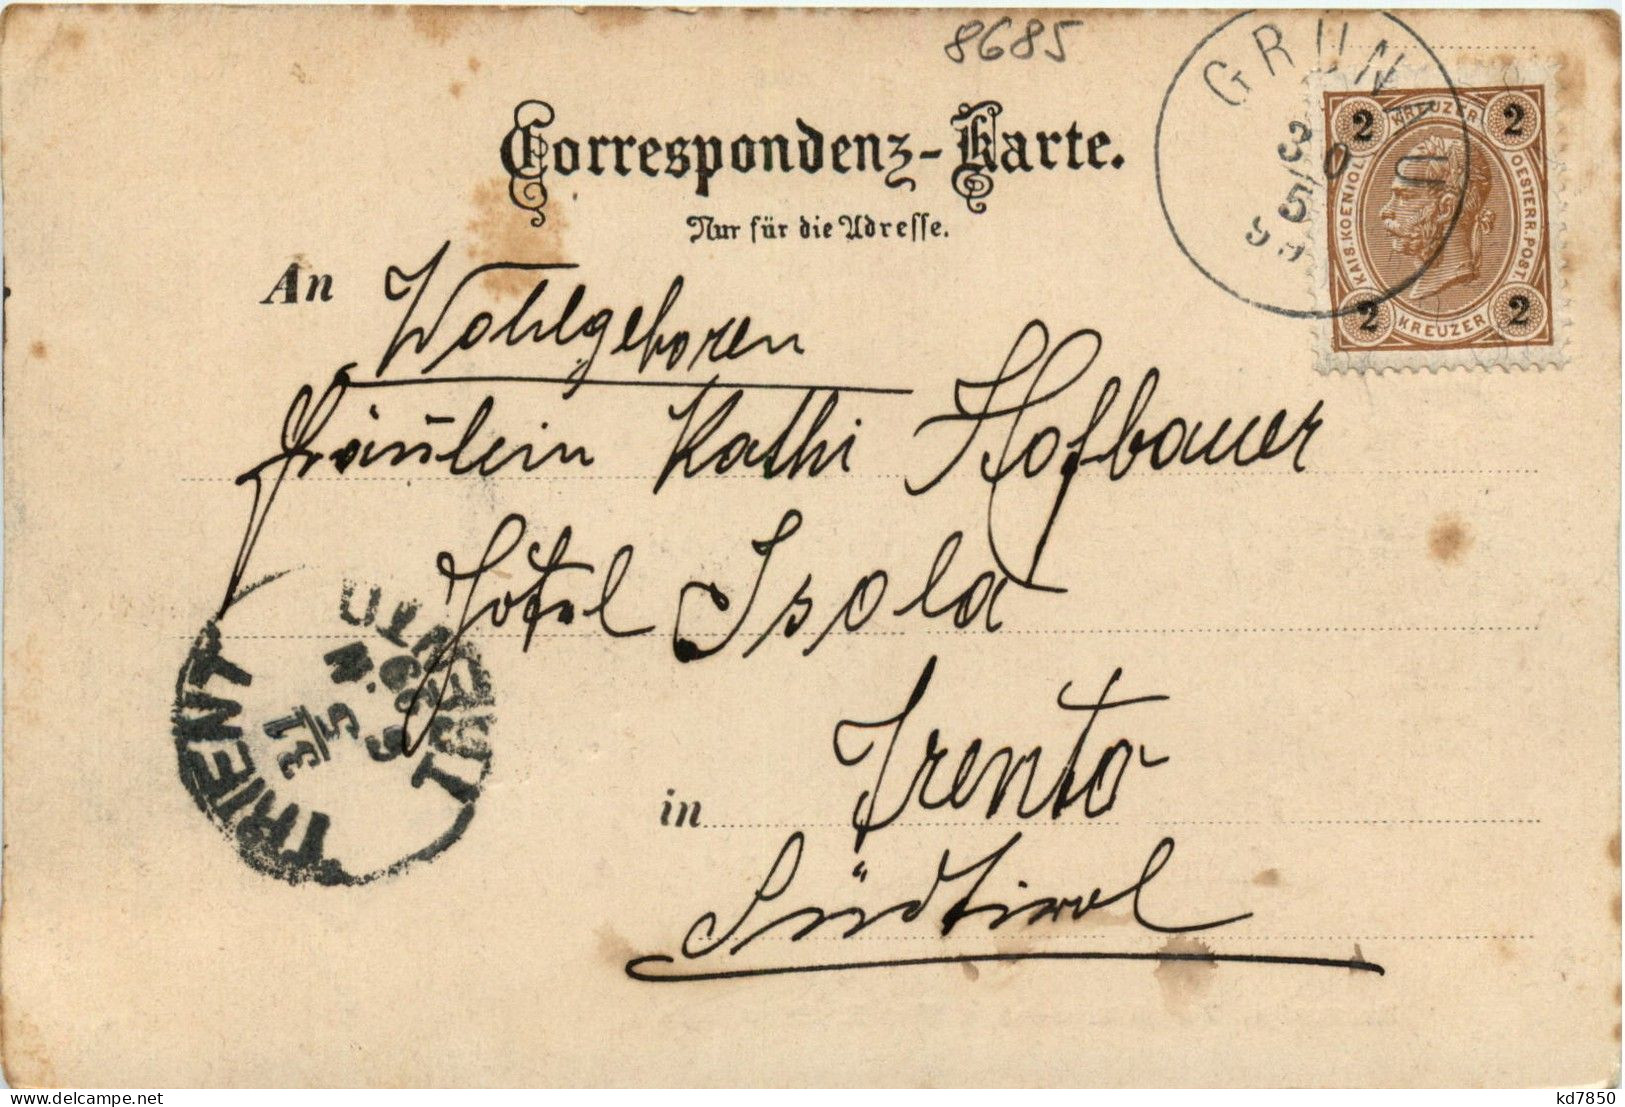 8685
GRÜNAU
30
5
99
KREUZER
2 2
KAIS. KOENIGL.
OESTERR. POST.
2 2
KREUZER
Correspondenz-Karte.
Nur für die Adresse.
An Wohlgeboren
Fräulein Kathi Hofbauer
Hôtel Isola
in Trento
Südtirol
TRIENT
TRENTO
31
5
99
5.N
kd7850